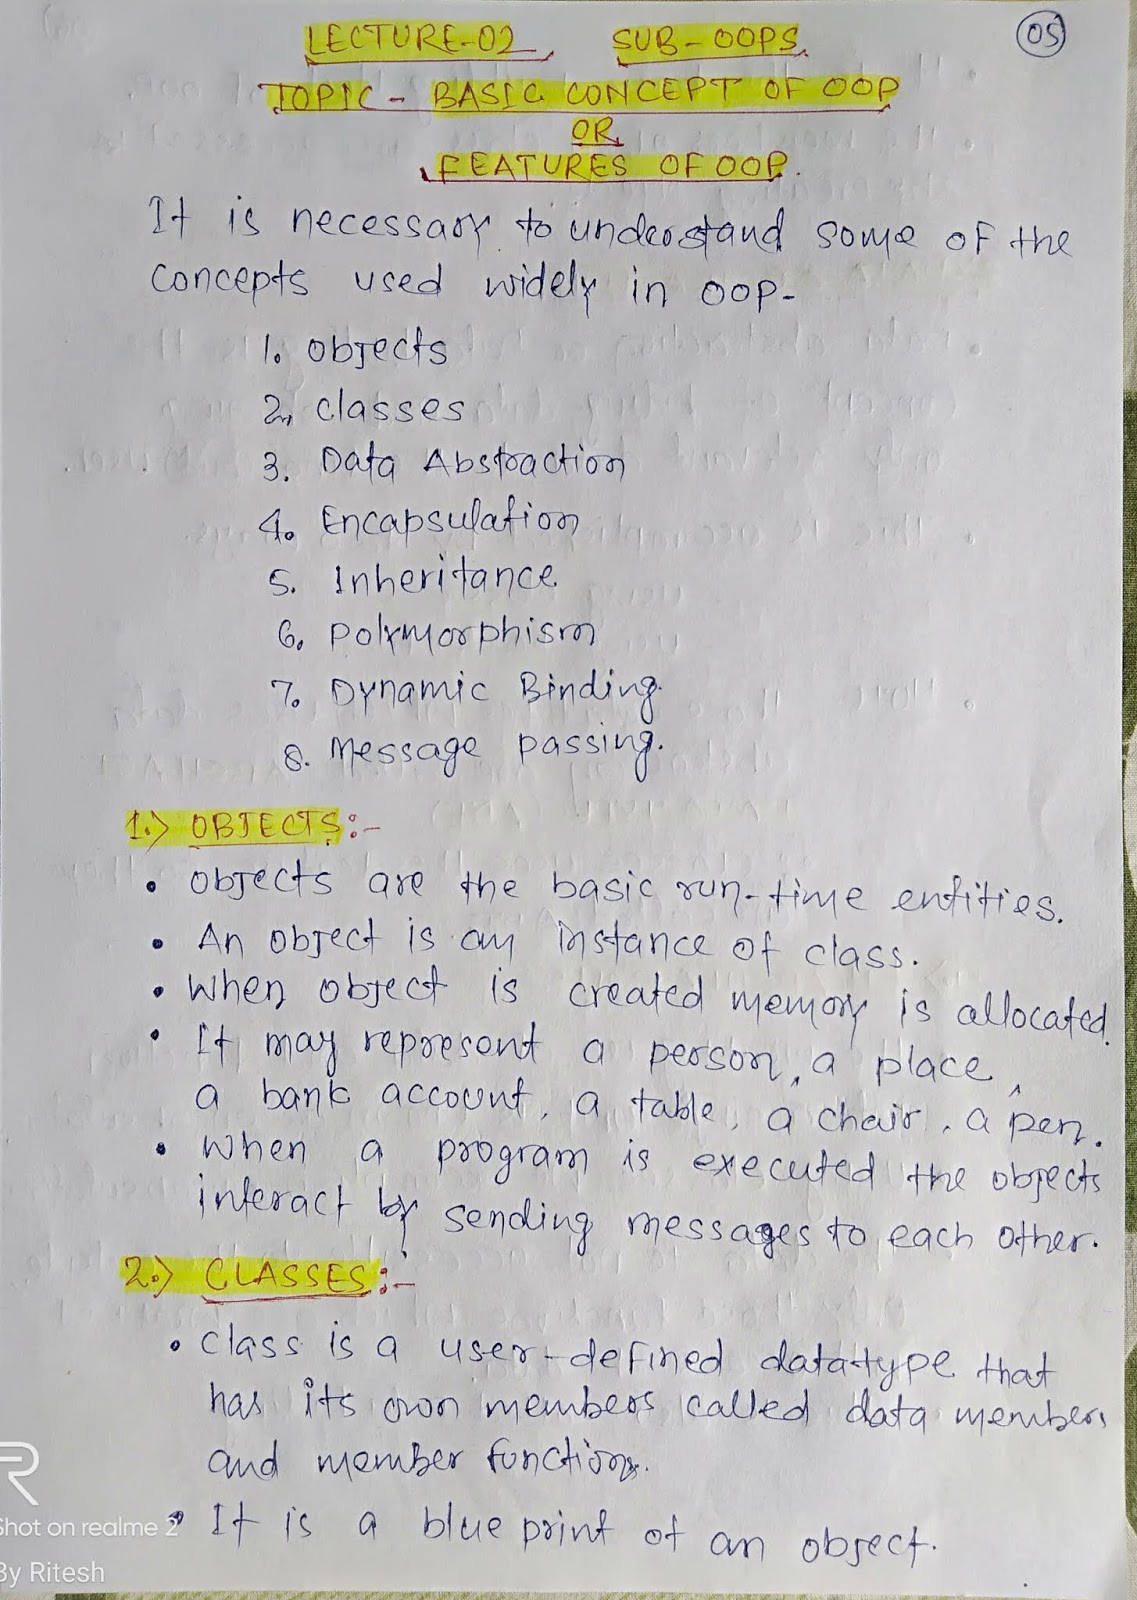 LECTURE-02 SUB-OOPS 05
TOPIC - BASIC CONCEPT OF OOP
OR
FEATURES OF OOP.
It is necessary to understand some of the
concepts used widely in OOP-
1. objects
2. classes
3. Data Abstraction
4. Encapsulation
5. Inheritance
6. Polymorphism
7. Dynamic Binding.
8. Message passing.
1.> OBJECTS:-
• objects are the basic run-time entities.
• An object is an instance of class.
• When object is created memory is allocated.
• It may represent a person, a place,
a bank account, a table, a chair, a pen.
• When a program is executed the objects
interact by sending messages to each other.
2.> CLASSES:-
• class is a user-defined datatype that
has its own members called data members
and member functions.
• It is a blue print of an object.
R
Shot on realme 2
By Ritesh